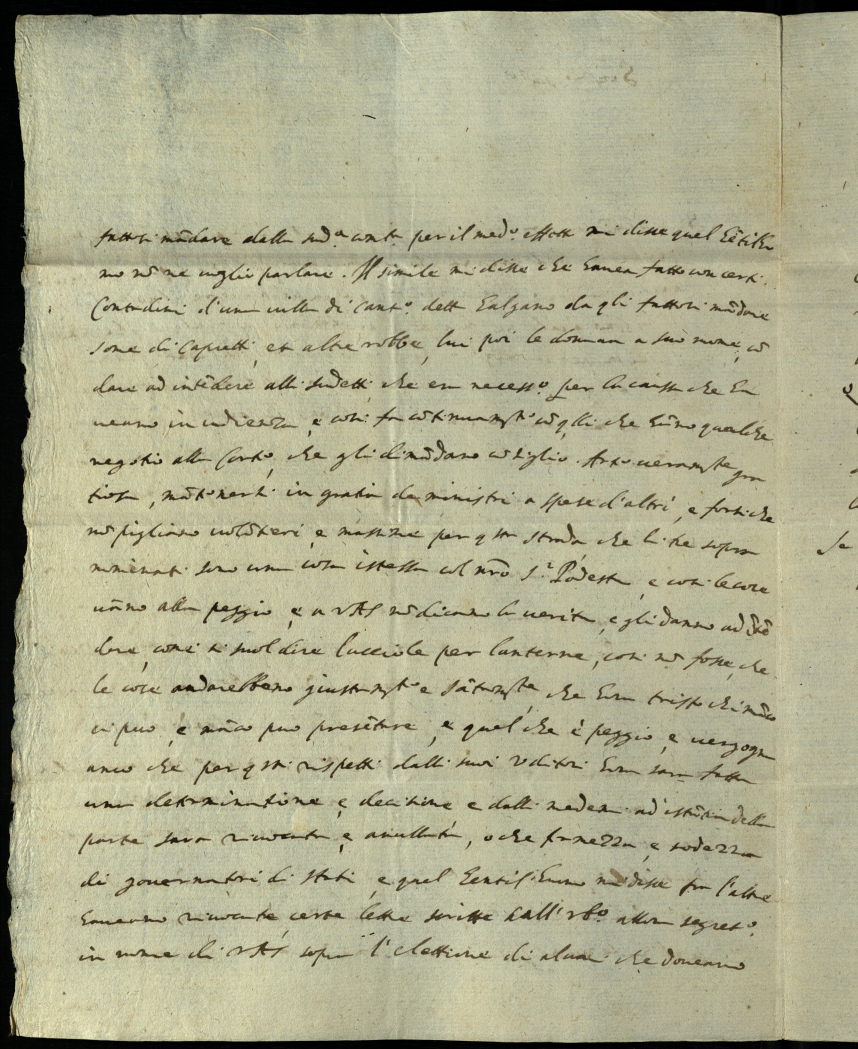 fattosi mādare dalla sud.ᵃ per il med.ᵒ effetto mi disse quel Gētil'hu
mo nō ne voglio parlare. Il simile mi disse che haueua fatto con certi
Contadini d'una villa di Cant.ᵒ detta Galgano da gli fattosi mādare
some di Capretti, et altre robbe, lui poi le donaua a suo nome, cō
dare ad intēdere alli sudetti che era necess.ᵒ per la causa che ha
ueano in udienza, e cosi fa cōtinuamᵗᵉ cō q̃lli che hāno qualche
negotio alla Corte, che gli dimādano cōsiglio. Arte ueramᵗᵉ gra
tiosa, mātenersi in gratia de ministri a spese d'altri, e forsi che
nō pigliano uolōtieri, e massime per q̃sta strada, che li tre sopra
nominati sono una cosa istessa col nr̃o S.ʳ Podesta, e cosi le cose
uāno alla peggio, e a VAS nō dicono la uerita, e gli danno ad ītē
dere, come si suol dire lucciole per lanterne, cosi nō fosse, che
le cose andarebbeno giustamᵗᵉ e sātamᵗᵉ, che hora tristo chi māco
ci puo, e māco puo presētare, e quel che è peggio, e uergogna
anco che per q̃sti rispetti dalli suoi Vditori hora sara fatta
una determinatione, e decisione e dalli medemi ad istātia della
parte sara riuocata, e anullata, o che fermezza, e sodezza
di gouernatori di stati, e quel Gentil'huomo mi disse fra l'altre
haueano riuocate certe lettre scritte dall' allora segret.ᵒ
in nome di VAS sopra l'elettione di alcuni che doueano